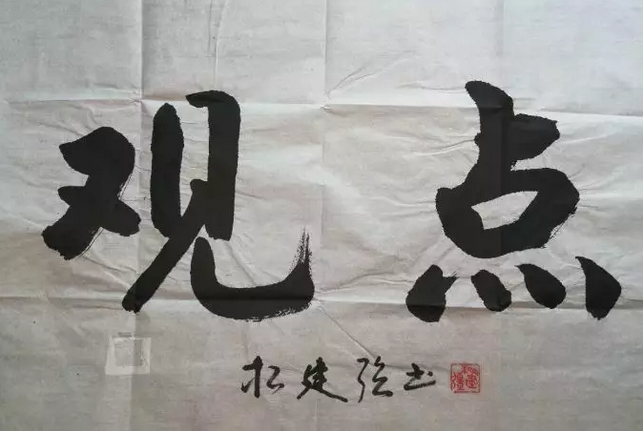 观点
建强书